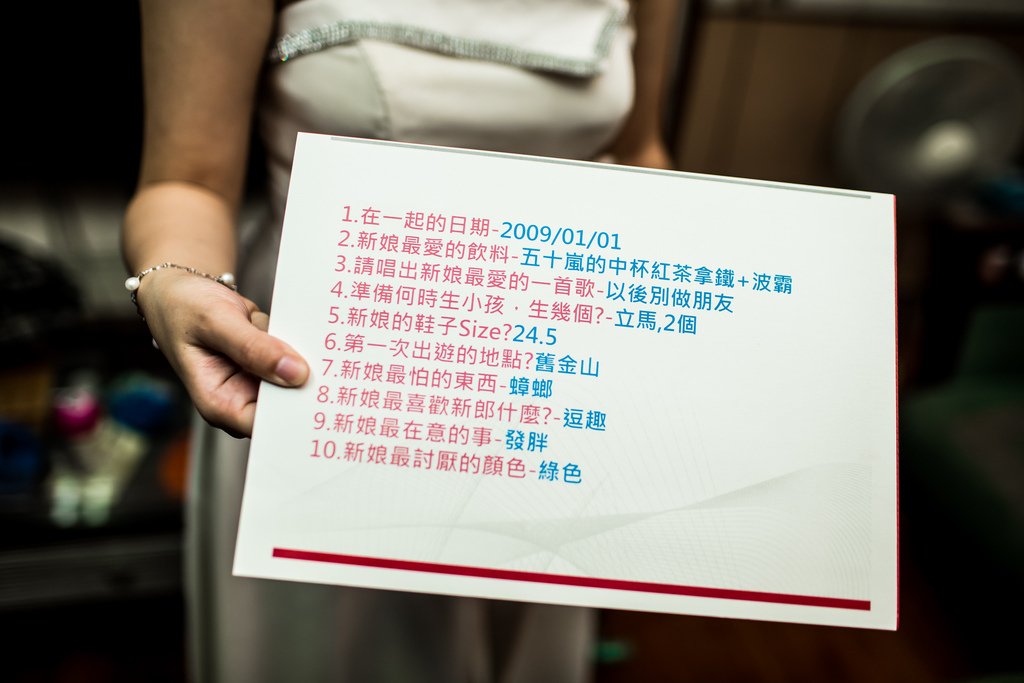 1.在一起的日期-2009/01/01
2.新娘最愛的飲料-五十嵐的中杯紅茶拿鐵+波霸
3.請唱出新娘最愛的一首歌-以後別做朋友
4.準備何時生小孩，生幾個?-立馬,2個
5.新娘的鞋子Size?24.5
6.第一次出遊的地點?舊金山
7.新娘最怕的東西-蟑螂
8.新娘最喜歡新郎什麼?-逗趣
9.新娘最在意的事-發胖
10.新娘最討厭的顏色-綠色